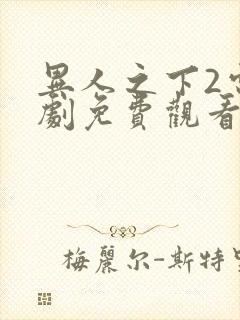 異人之下2
劇免費觀看
梅麗尔-斯特